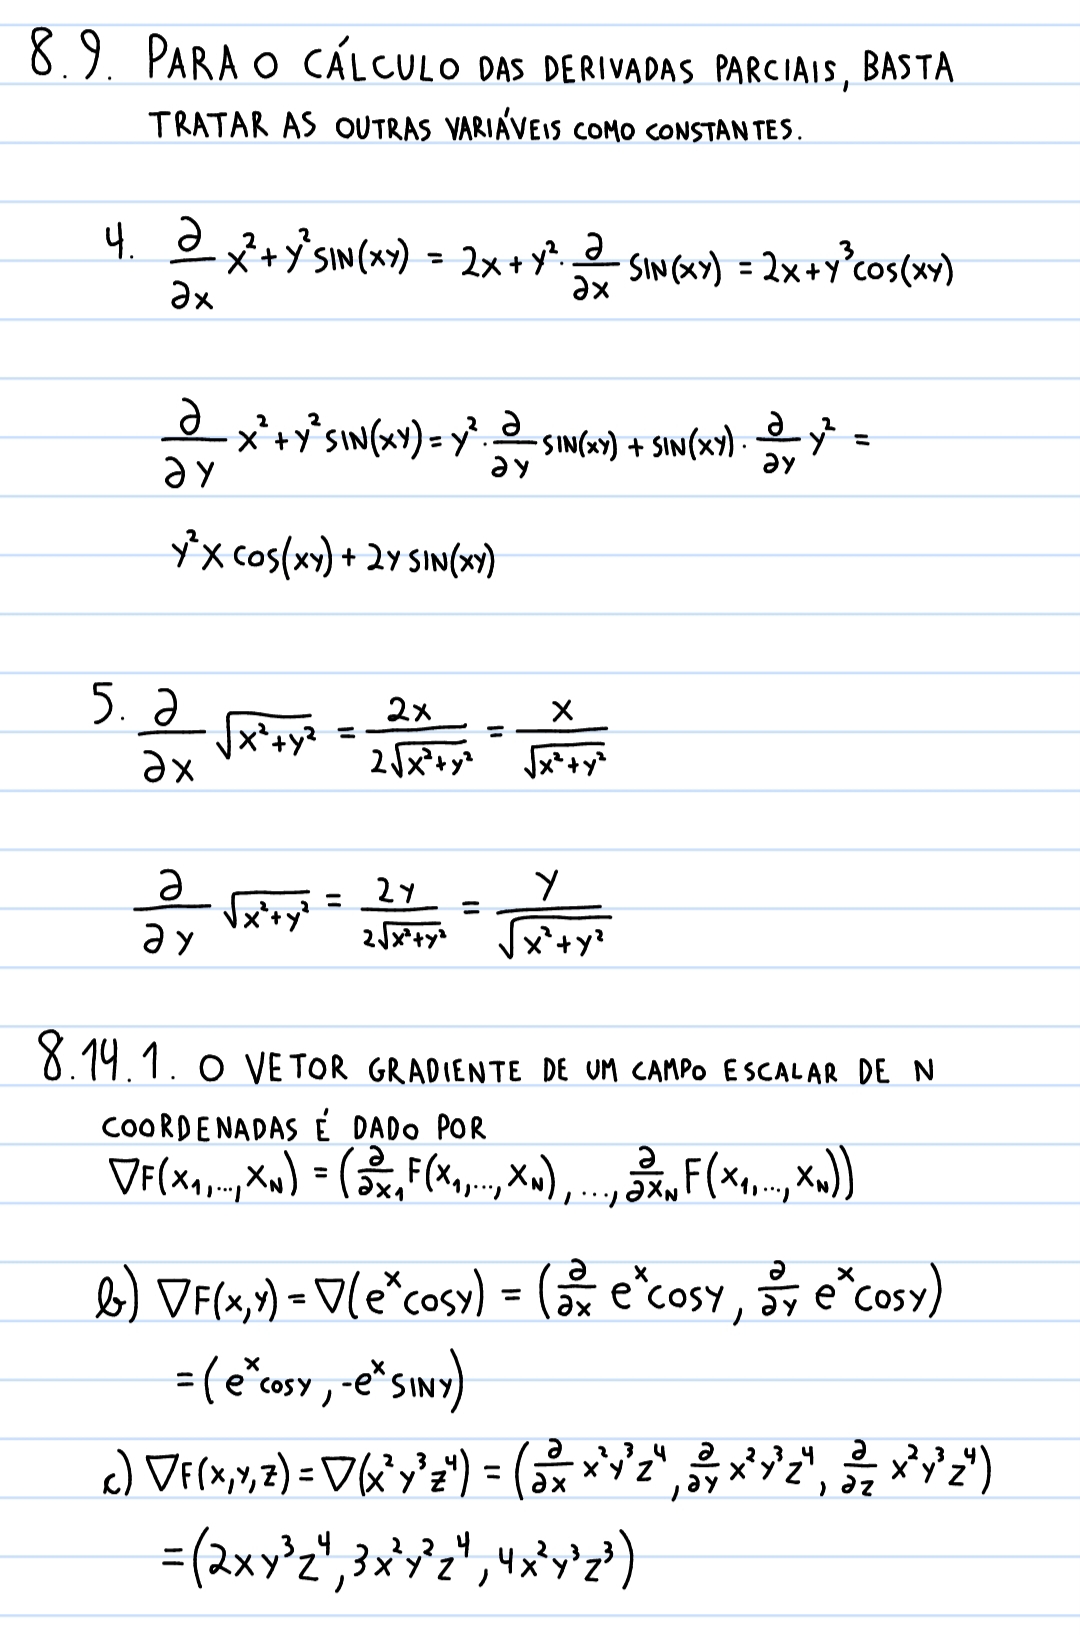 8.9. PARA O CÁLCULO DAS DERIVADAS PARCIAIS, BASTA
TRATAR AS OUTRAS VARIÁVEIS COMO CONSTANTES.
4. ∂/∂x x²+y²SIN(xy) = 2x+y²·∂/∂x SIN(xy) = 2x+y³cos(xy)
∂/∂y x²+y²SIN(xy) = y²·∂/∂y SIN(xy) + SIN(xy)·∂/∂y y² =
y²x cos(xy) + 2y SIN(xy)
5. ∂/∂x √(x²+y²) = 2x/(2√(x²+y²)) = x/√(x²+y²)
∂/∂y √(x²+y²) = 2y/(2√(x²+y²)) = y/√(x²+y²)
8.14.1. O VETOR GRADIENTE DE UM CAMPO ESCALAR DE N
COORDENADAS É DADO POR
∇F(x₁,...,x_N) = (∂/∂x₁ F(x₁,...,x_N),...,∂/∂x_N F(x₁,...,x_N))
b) ∇F(x,y) = ∇(eˣcosy) = (∂/∂x eˣcosy, ∂/∂y eˣcosy)
= (eˣcosy, -eˣSINy)
c) ∇F(x,y,z) = ∇(x²y³z⁴) = (∂/∂x x²y³z⁴, ∂/∂y x²y³z⁴, ∂/∂z x²y³z⁴)
= (2xy³z⁴, 3x²y²z⁴, 4x²y³z³)